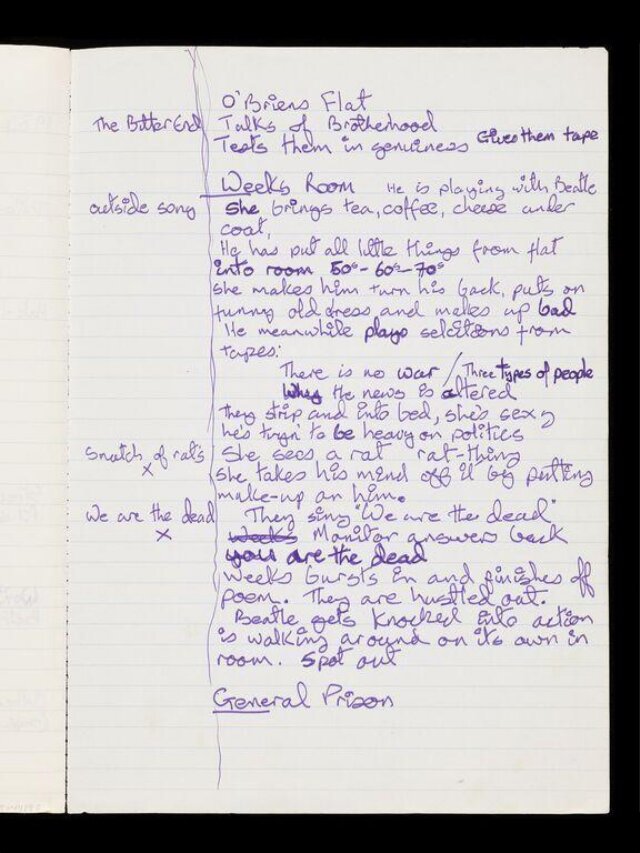 O'Briens Flat
The Bitter End Talks of Brotherhood
Tests them in genuiness Gives them tape
Weeks Room He is playing with Beatle
outside song She brings tea, coffee, cheese under
coat,
He has put all little things from flat
into room 50s - 60s - 70s
she makes him turn his back, puts on
funny old dress and makes up bad
He meanwhile plays selections from
tapes:
There is no war / Three types of people
Why He news is altered
They strip and into bed, she's sexy
he's tryn' to be heavy on politics
Snatch of rats She sees a rat rat-thing
x she takes his mind off it by putting
make-up on him.
We are the dead They sing "We are the dead"
x Weeks Monitor answers back
you are the dead
Weeks bursts in and finishes off
poem. They are hustled out.
Beatle gets knocked into action
is walking around on its own in
room. Spot out
General Prison